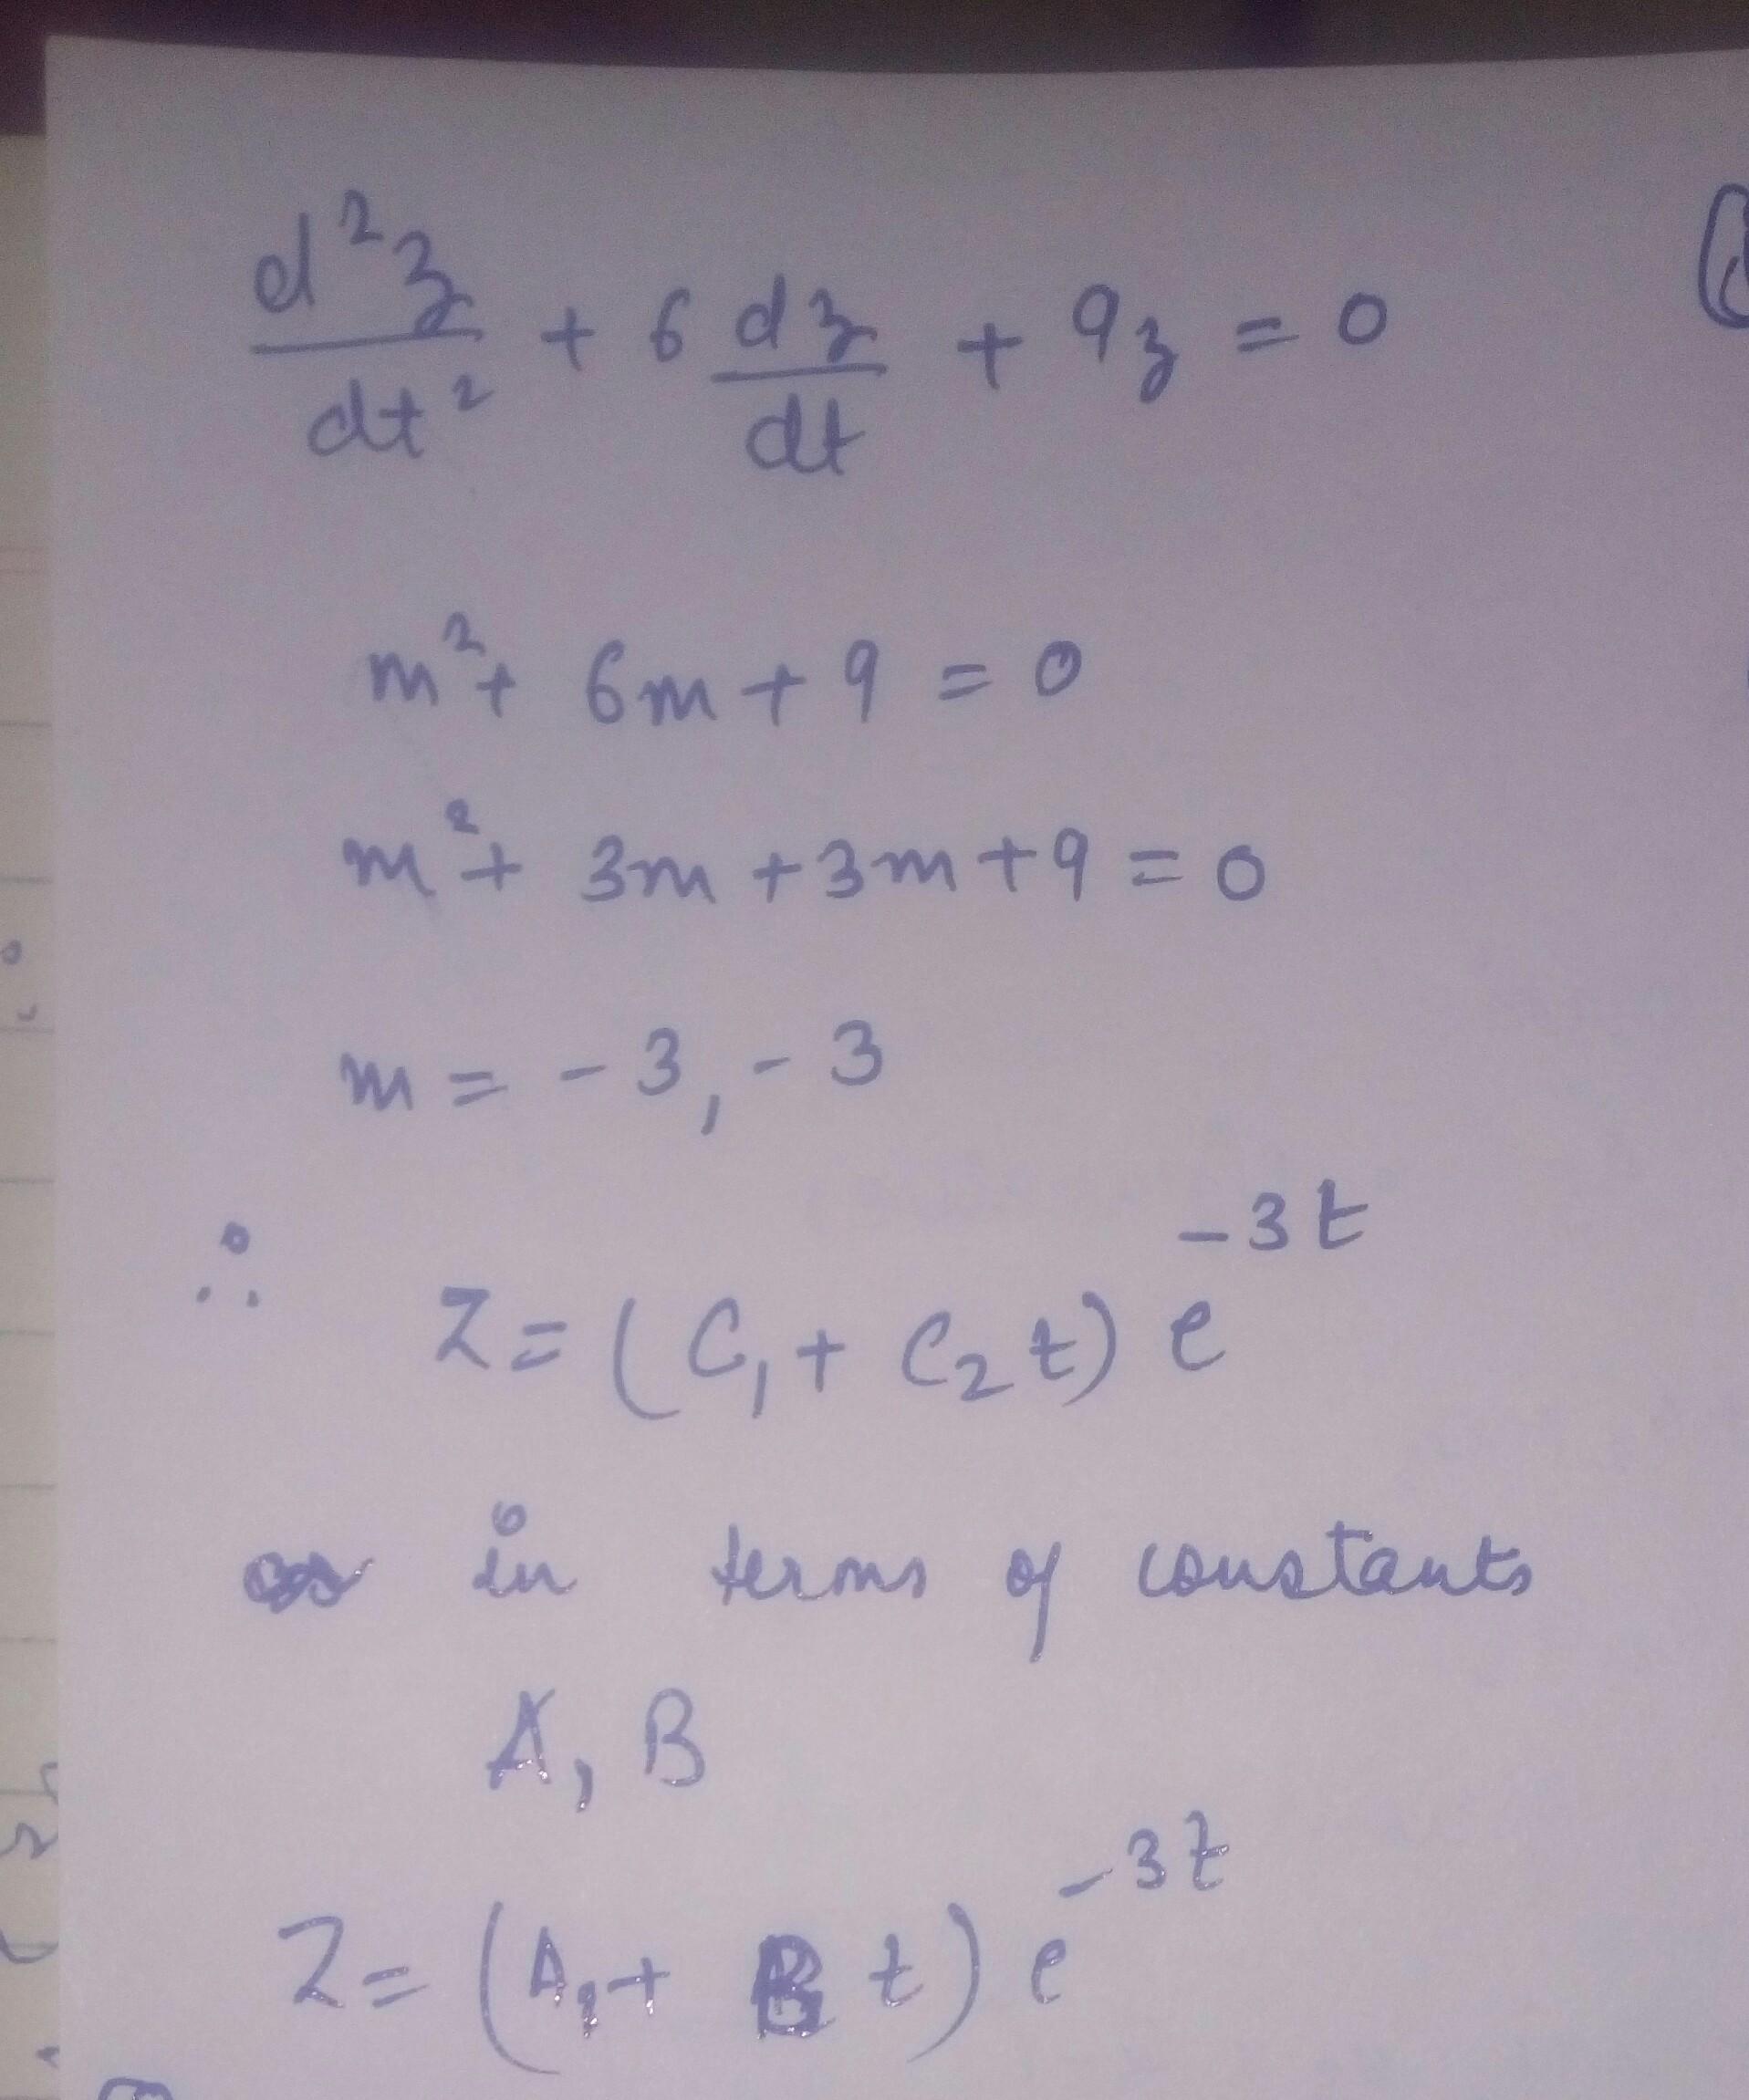 d²z/dt² + 6 dz/dt + 9z = 0
m² + 6m + 9 = 0
m² + 3m + 3m + 9 = 0
m = -3, -3
∴ Z = (C₁ + C₂ t) e^(-3t)
or in terms of constants
A, B
Z = (A₁ + B t) e^(-3t)